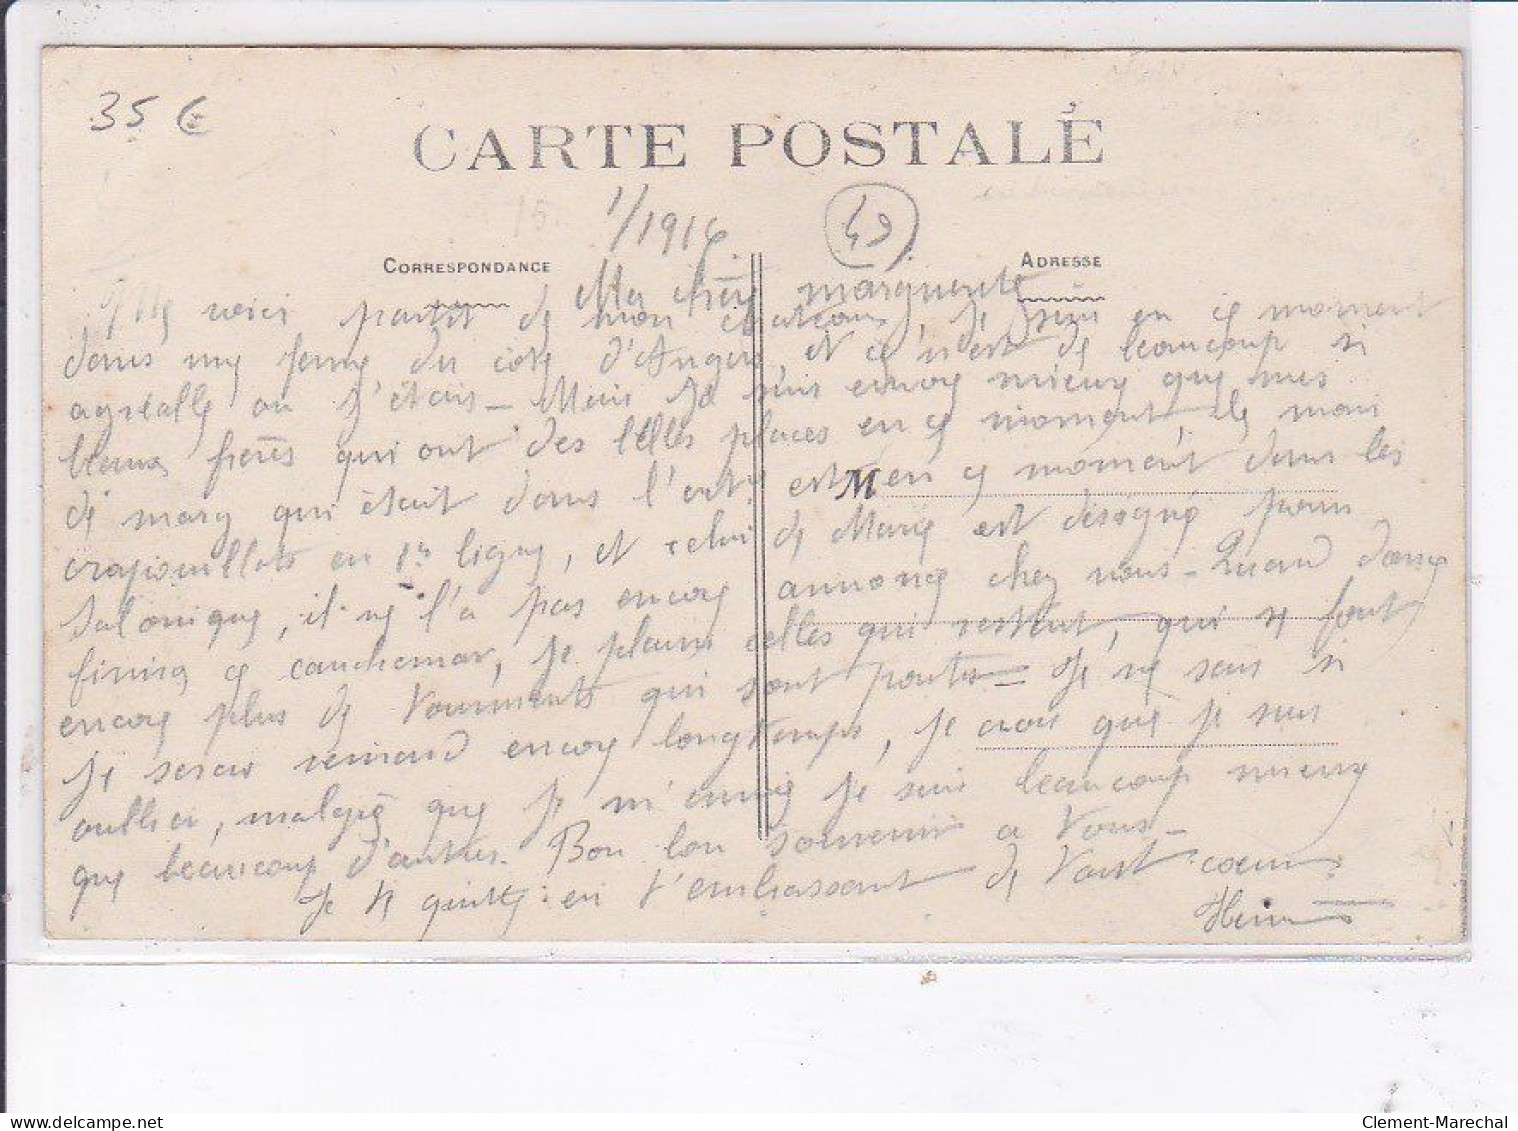 35 €
CARTE POSTALE
1/1916
49
CORRESPONDANCE
ADRESSE
Ma chère marguerite
Me voici partit de mon chateau, je suis en ce moment
dans une ferme du coté d'Angers, et ce n'est de beaucoup si
agréable ou j'étais - Mais je suis encore mieux que mes
beaux frères qui ont des belles places en ce moment, le mari
de marg qui était dans l'art est en ce moment dans les
crapouillots en 1re ligne, et celui de Marie est désigné pour
Salonique, il ne l'a pas encore annoncé chez nous - Quand donc
finira ce cauchemar, je plains celles qui restent, qui se font
encore plus de tourments qui sont partis - Je ne sais si
je serais renvoyé encore longtemps, je crois que je suis
oublier, malgré que je m'ennuie je suis beaucoup mieux
que beaucoup d'autres. Bon souvenir a tous -
Je te quitte en t'embrassant de tout coeur
Henri
Clement-Marechal